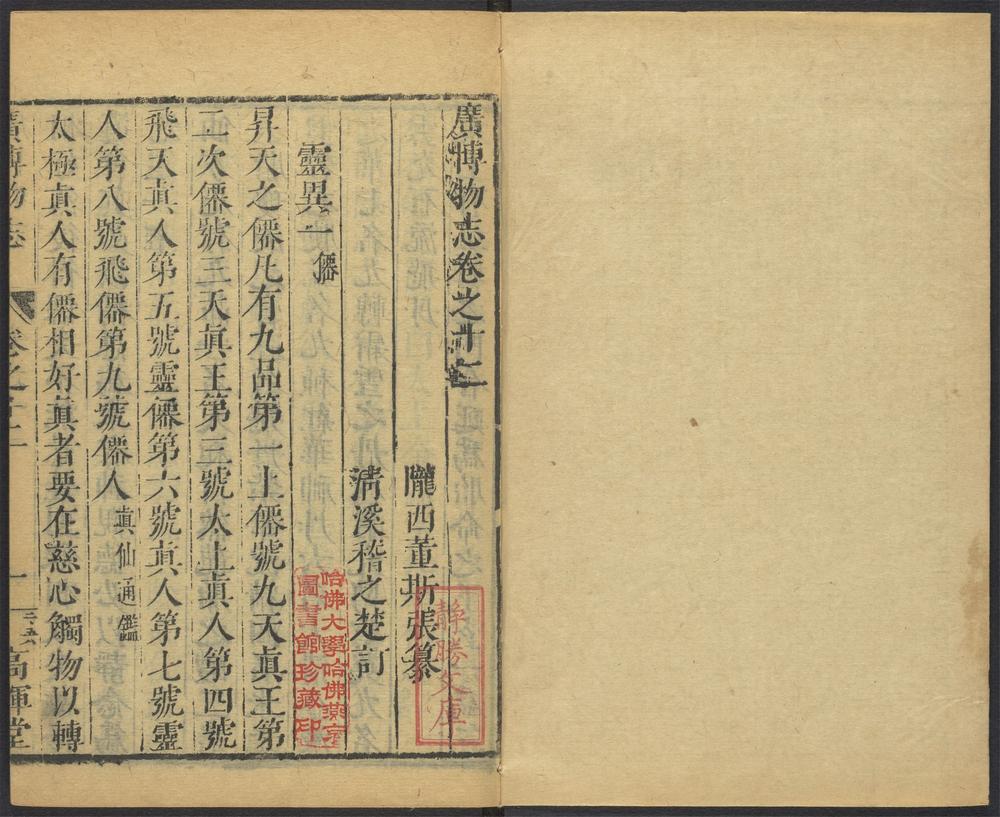 廣博物志卷之十二
隴西董斯張纂
清溪稽之楚訂
靈異一僊
昇天之僊凡有九品第一上僊號九天眞王第
二次僊號三天眞王第三號太上眞人第四號
飛天眞人第五號靈僊第六號眞人第七號靈
人第八號飛僊第九號僊人眞仙通鑑
太極眞人有僊相好眞者要在慈心觸物以轉
廣博物志 卷之十二 一 高暉堂
靜勝文庫
哈佛大學哈佛燕京
圖書館珍藏印